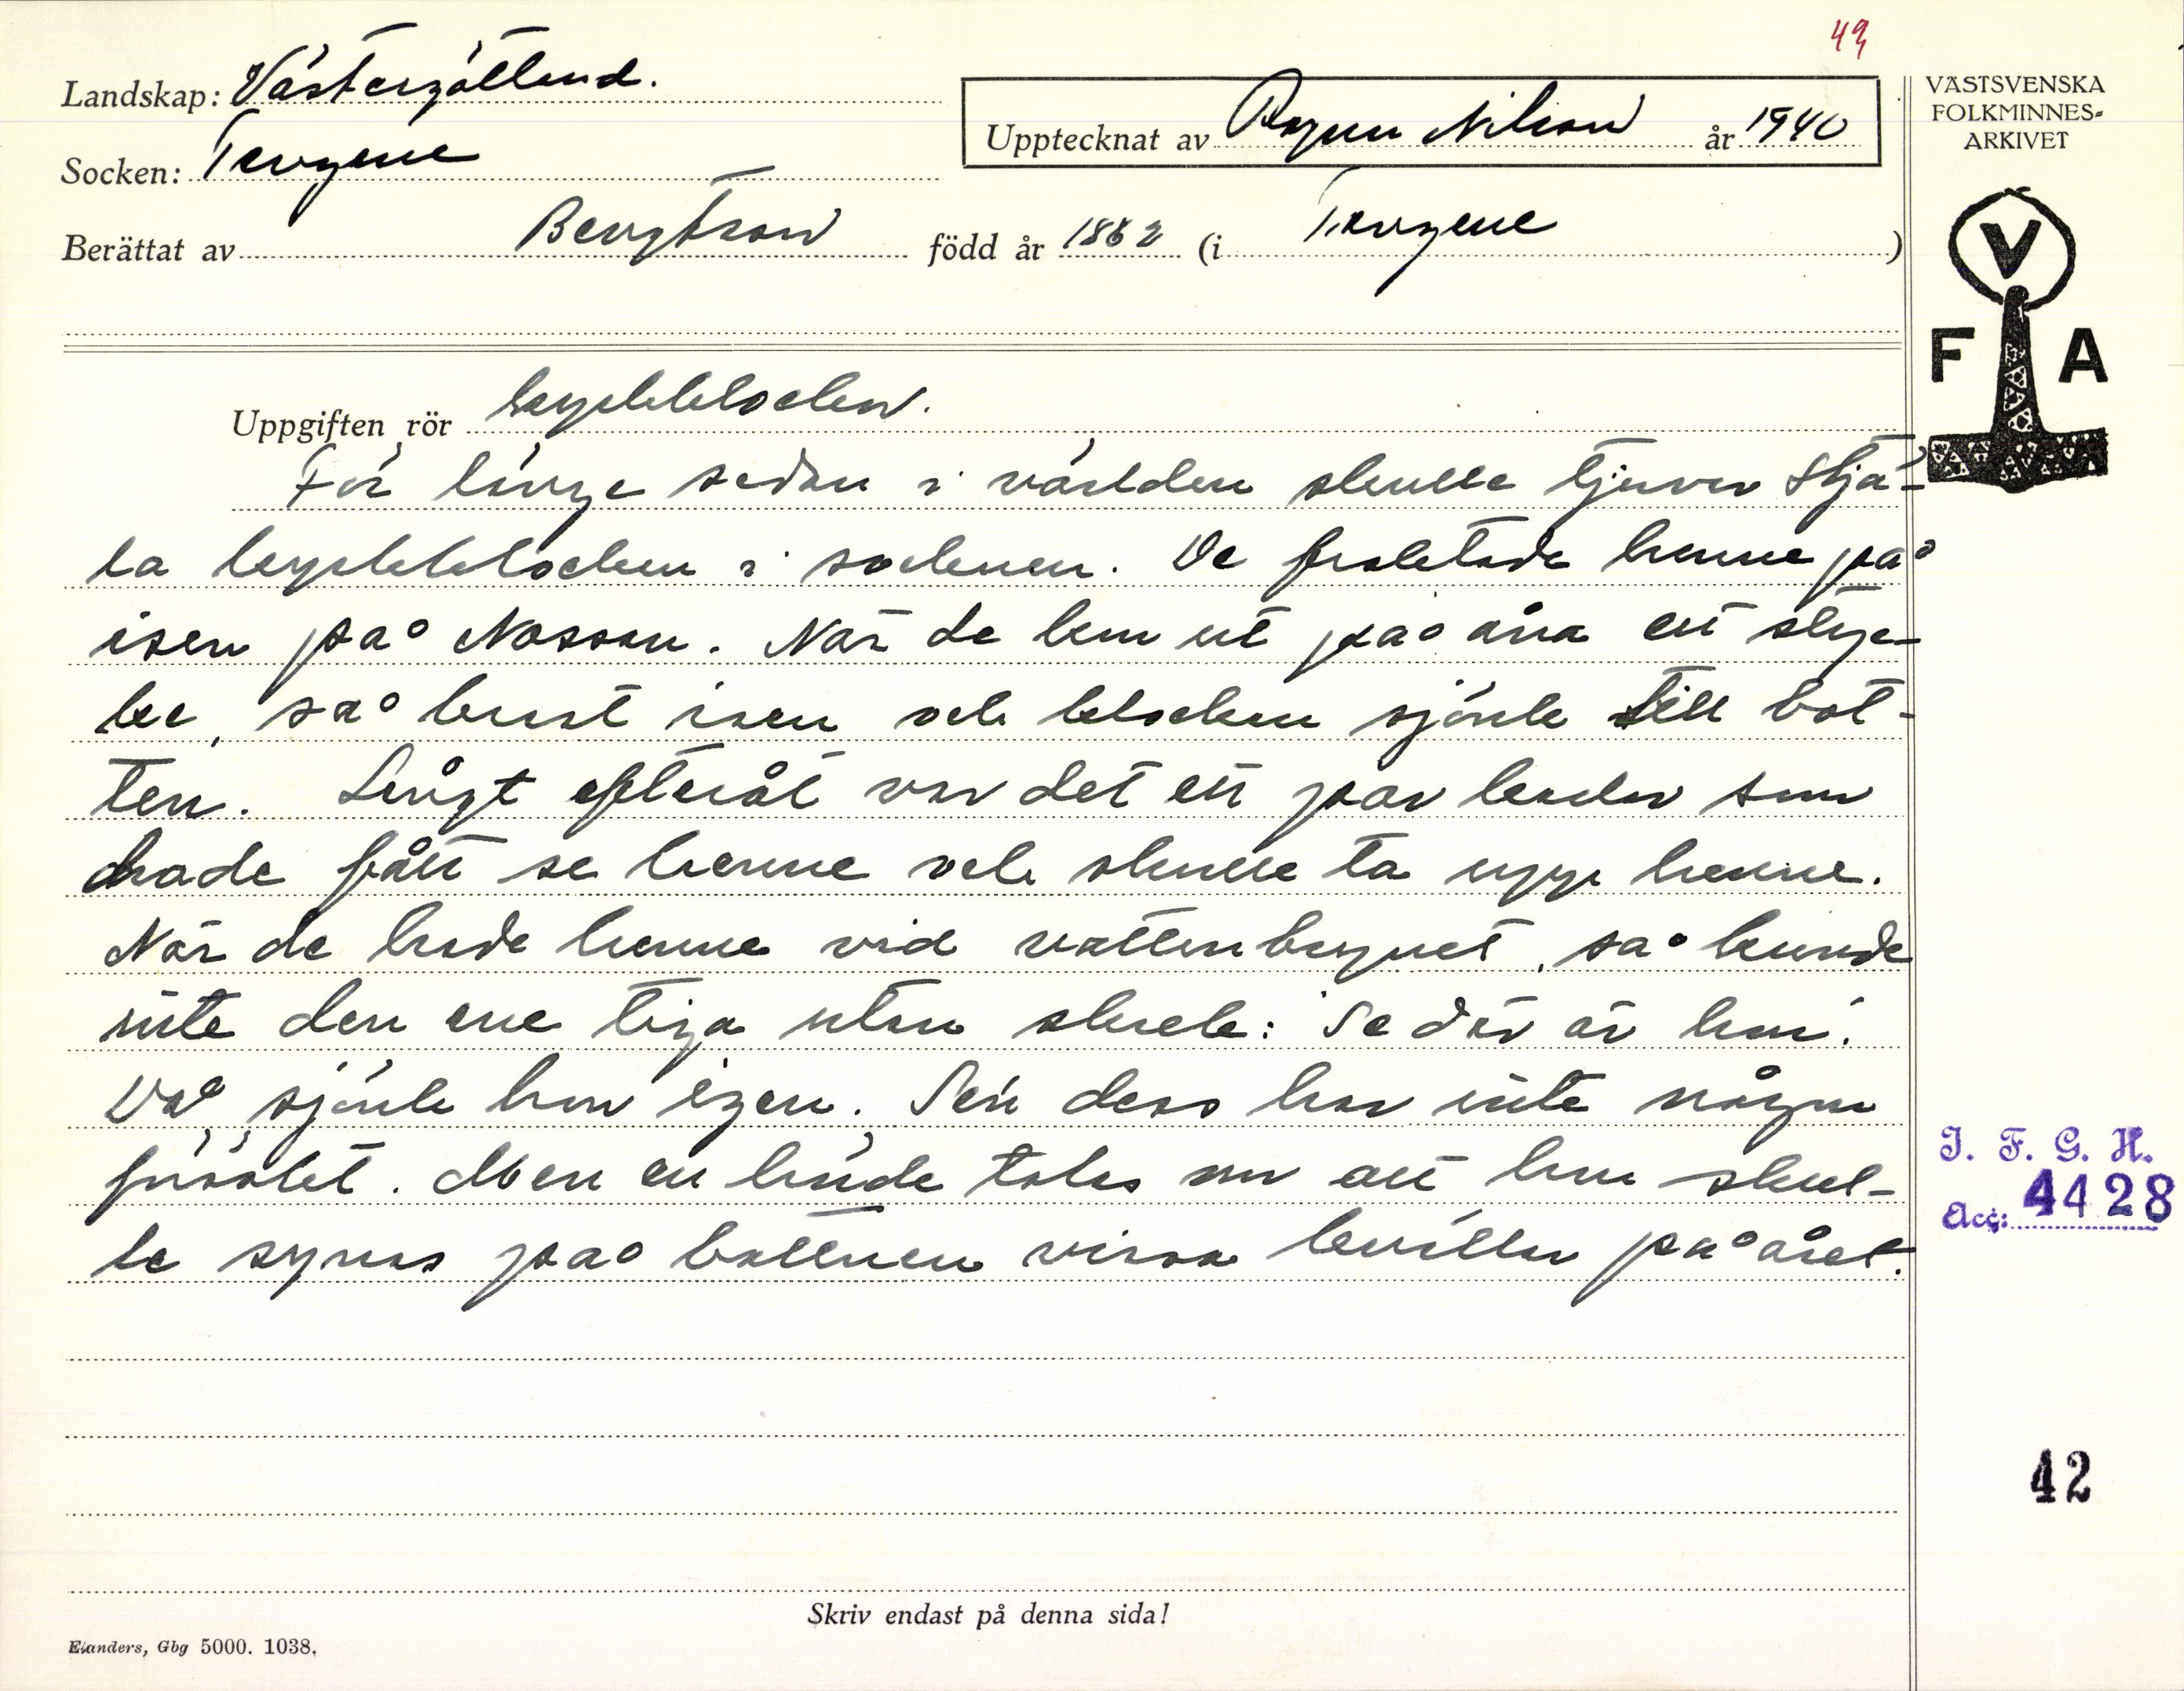 49
Landskap: Västergötland.
Upptecknat av Ragnar Nilson år 1940
VÄSTSVENSKA
FOLKMINNES-
ARKIVET
Socken: Tengene
Berättat av Bengtson född år 1862 (i Tengene)
V
F A
Uppgiften rör kyrkklockan.
För länge sedan i världen skulle tjuvar stjä-
la kyrkklockan i socknen. De fraktade henne på
isen på Nossan. När de kom ut på åna ett styc-
ke, så brast isen och klockan sjönk till bot-
ten. Långt efteråt var det ett par karlar som
hade fått se henne och skulle ta upp henne.
När de hade henne vid vattenbrynet, så kunde
inte den ene tiga utan skrek: Se där är hon!
Då sjönk hon igen. Sen dess har inte någon
försökt. Men en hörde talas om att hon skul-
le synas på bottnen vissa kvällar på året.
I. F. G. H.
Acc: 4428
42
Skriv endast på denna sida!
Elanders, Gbg 5000. 1038.